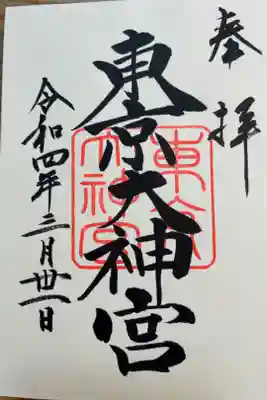 奉拝
東京大神宮
東京大神宮
令和四年三月卅一日